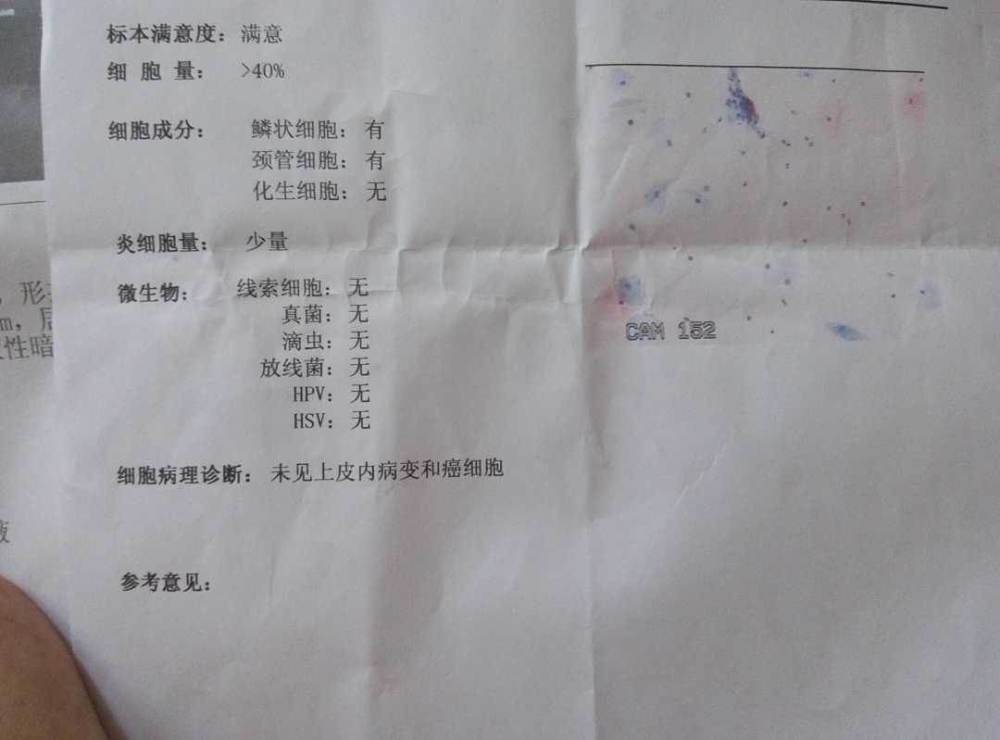 标本满意度：满意
细 胞 量： >40%
细胞成分： 鳞状细胞：有
颈管细胞：有
化生细胞：无
炎细胞量： 少量
微生物： 线索细胞：无
真菌：无
滴虫：无
放线菌：无
HPV：无
HSV：无
细胞病理诊断：未见上皮内病变和癌细胞
参考意见：
CAM 152
，形
m，
性暗